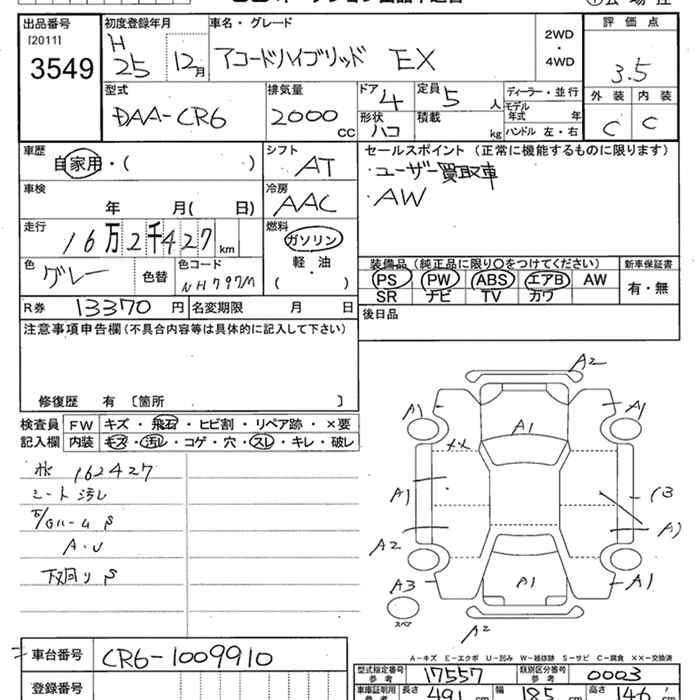 出品番号 初度登録年月 車名・グレード 評価点
[2011] H
3549 25 12月 アコードハイブリッド EX 2WD・4WD 3.5
型式 排気量 ドア 定員 ディーラー・並行 外装 内装
DAA-CR6 2000cc 4 5人 モデル年式 年 C C
形状 ハコ 積載 kg ハンドル 左・右
車歴 シフト セールスポイント(正常に機能するものに限ります)
自家用・( ) AT ・ユーザー買取車
車検 冷房 ・AW
年 月( 日) AAC
走行 燃料
16万2千427km ガソリン
軽・油
( )
色 色替 色コード 装備品(純正品に限り○をつけてください) 新車保証書
グレー NH797M PS PW ABS エアB AW 有・無
SR ナビ TV カワ
R券 13370円 名変期限 月 日 後日品
注意事項申告欄(不具合内容等は具体的に記入して下さい)
修復歴 有〔箇所 〕
検査員 FW キズ・飛石・ヒビ割・リペア跡・×要
記入欄 内装 キズ・汚れ・コゲ・穴・スレ・キレ・破レ
162427
シート汚レ
A・U
下回りS
A2
A1 A1
A1
××
A1 B
A2 A1
A3 A1 A1
スペア
A2
A-キズ E-エクボ U-凹み W-補修跡 S-サビ C-腐食 ××-交換済
車台番号 CR6-1009910
型式指定番号 参考 17557 類別区分番号 参考 0003
登録番号 車庫証明用 参考 長さ 491cm 幅 185cm 高さ 146